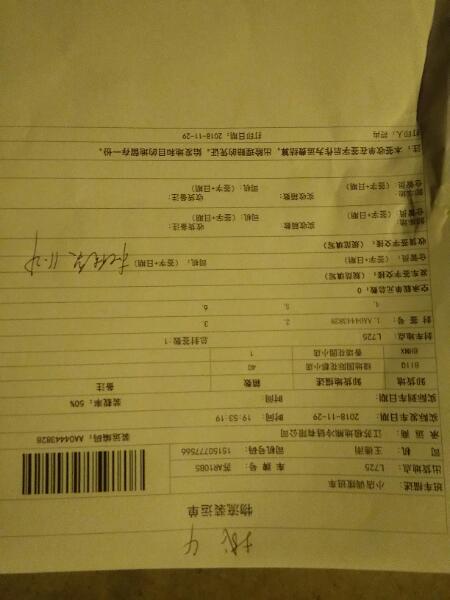 物流装运单
班车描述: 小店调拨班车
出货地点: L725 车牌号 苏AR10B5
司机 王德刚 司机号码 1515077566
承运商 江苏恒湘冷链有限公司
装运编码: AA04443828
实际发车日期: 2018-11-29 时间: 19:53:19
实际到车日期: 时间: 装载率: 50%
卸货地 卸货地描述 箱数 备注
811Q 绿地国际花都小店 40
香颂花园小店 1
封车地点: L725 总封签数: 1
封签号: 1. AA04443828 2. 3.
4. 5. 6.
空承载单元总数: 0,
发车签字交接: (规范填写)
仓管员: (签字+日期) 司机: (签字+日期) 11.29
收货签字交接: (规范填写)
卸货地: 实收箱数: 收货备注:
仓管员: (签字+日期) 司机: (签字+日期)
卸货地: 实收箱数: 收货备注:
仓管员: (签字+日期) 司机: (签字+日期)
注: 本签收单在签字后作为运费结算, 出险理赔的凭证, 始发地和目的地留存一份。
打印日期: 2018-11-29